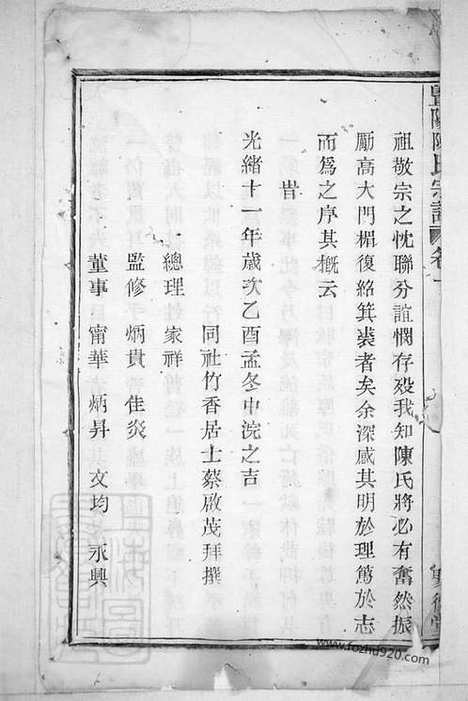 暨陽陳氏宗譜 卷一
祖敬宗之忱聯分誼憫存殁我知陳氏將必有奮然振
勵高大門楣復紹箕裘者矣余深感其明於理篤於志
而為之序其概云
旹
光緒十一年歲次乙酉孟冬中浣之吉
同社竹香居士蔡啟茂拜撰
總理 家祥
監修 炳貴 佳炎
董事 甯華 炳昇 文均 永興
www.fozhu920.com